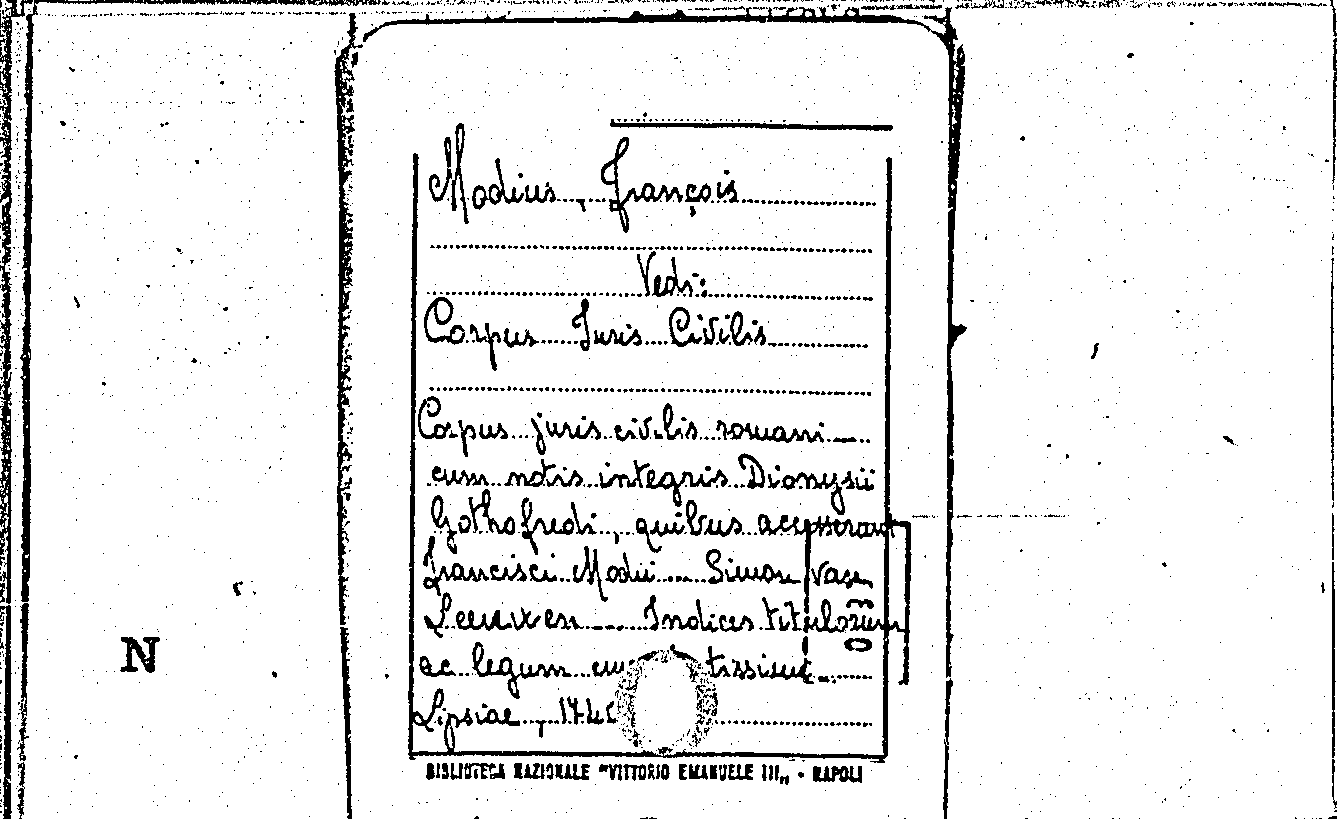 Modius, François
Vedi:
Corpus Juris Civilis
Corpus juris civilis romani
cum notis integris Dionysii
Gothofredi, quibus accesserant
Francisci Modii Simon Van
Leeuwen Indices titulorum
ac legum
Lipsiae,
N
BIBLIOTECA NAZIONALE "VITTORIO EMANUELE III„ - NAPOLI